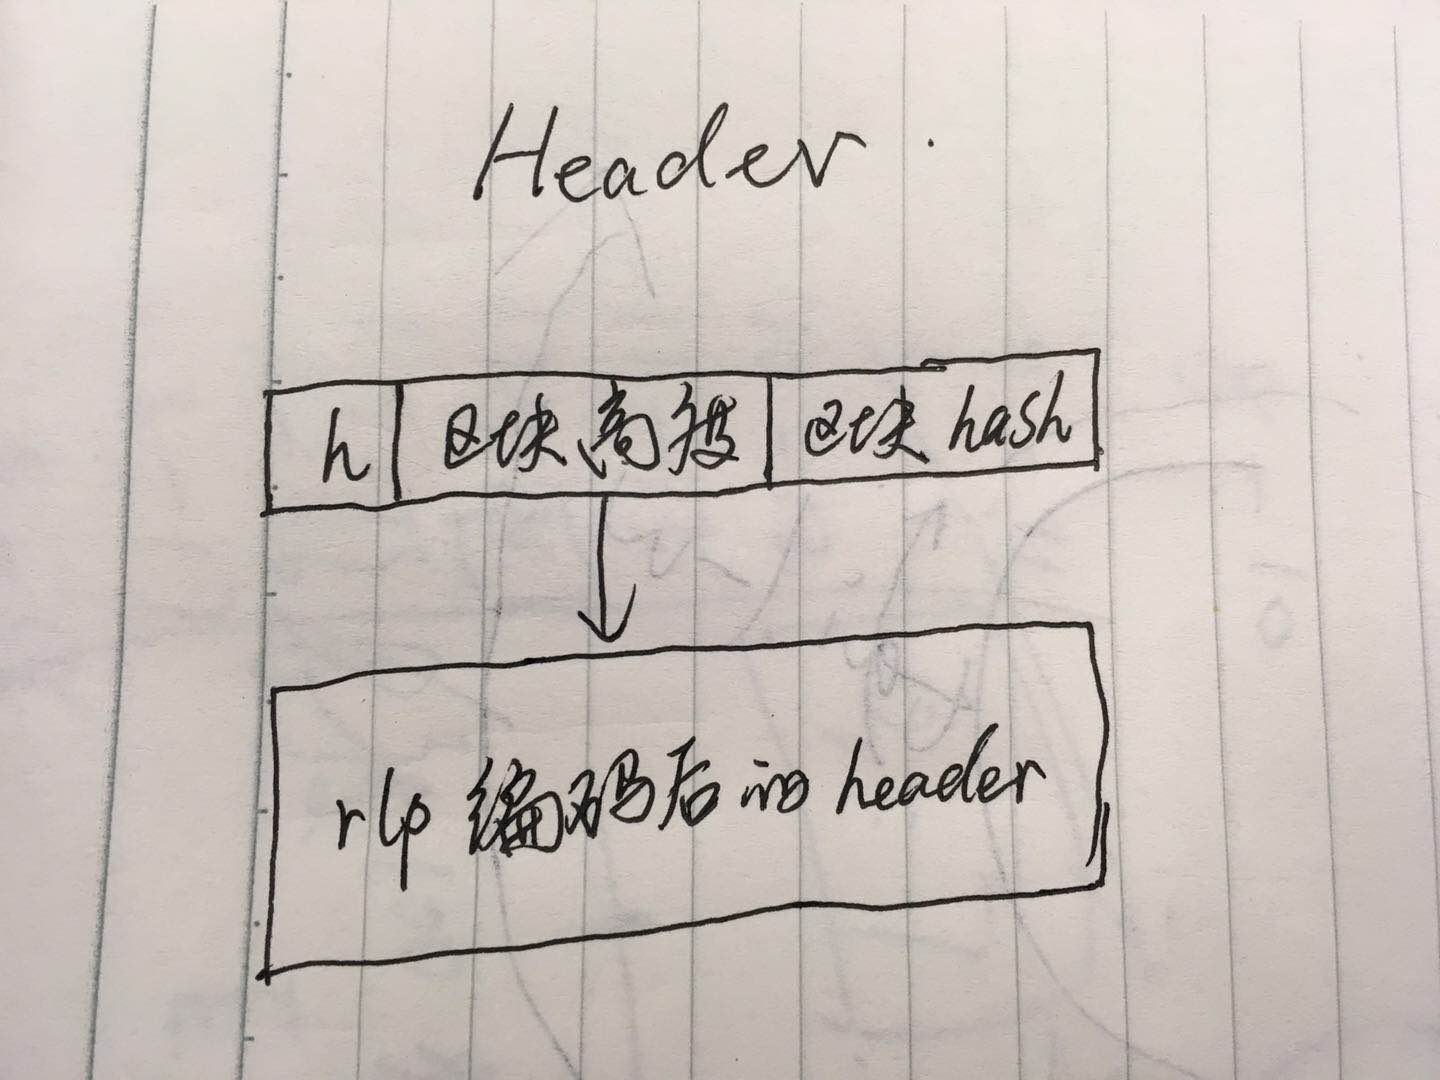 Header
h 区块高度 区块hash
rlp 编码后的header